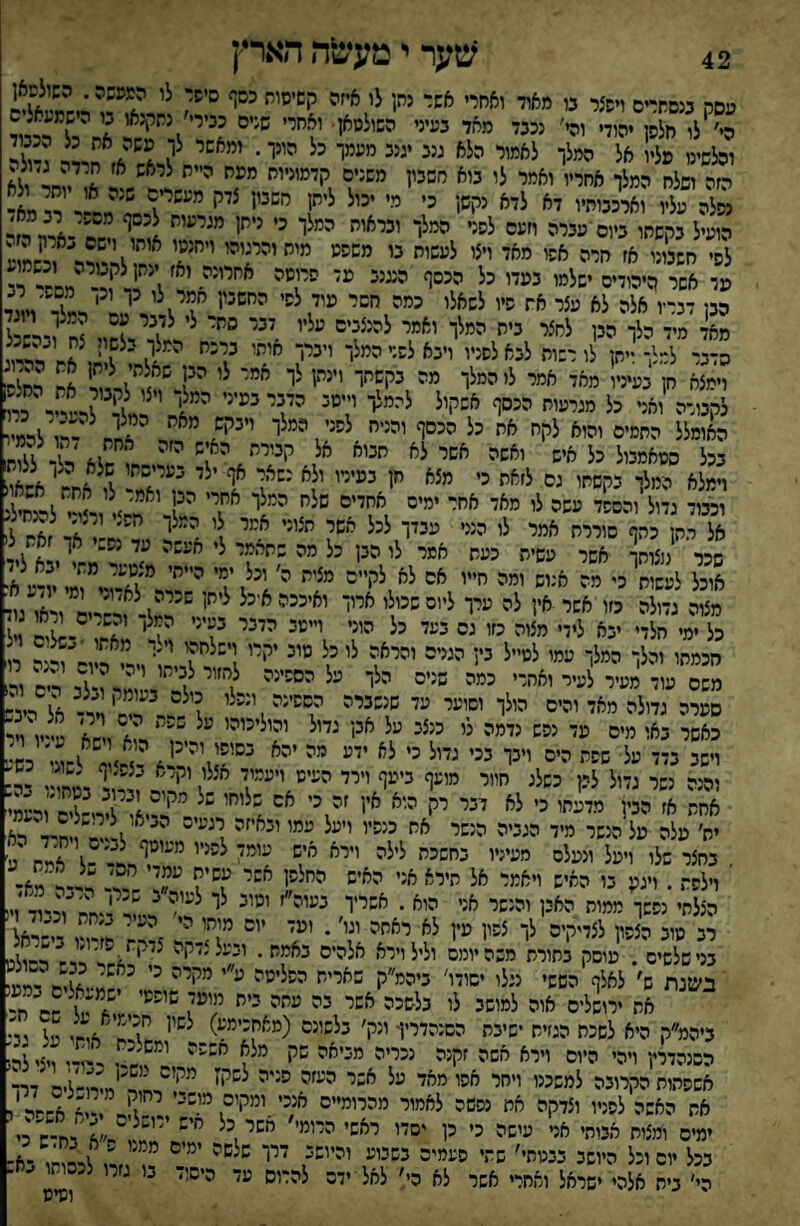 42 שער י מעשה הארץ
עסק בנסתרים ויפצר בו מאוד ואחרי אשר נתן לו איזה קשיטות כסף סיפר לו המעשה. השולטאן
הי' לו חלפן יהודי והי' נכבד מאד בעיני השולטאן ואחרי שנים כבירי' נתקנאו בו הישמעאלים
והלשינו עליו אל המלך לאמור הלא גנב יגנב מעמך כל הונך. ומאשר לך עשה את כל הכבוד
הזה ושלח המלך אחריו ואמר לו בוא חשבון משנים קדמוניות מעת היית לראש אז חרדה גדולה
נפלה עליו וארכבותיו דא לדא נקשן כי מי יכול ליתן חשבון צדק מעשרים שנה או יותר ולא
הועיל בקשתו ביום עברה וזעם לפני המלך ובראות המלך כי ניתן מגרעות לכסף מספר רב מאד
לפי חשבונו אז חרה אפו מאד ויצו לעשות בו משפט מות והרגוהו ויחנטו אותו וישם בארון הזה
עד אשר היהודים ישלמו בעדו כל הכסף הנגנב עד פרוטה אחרונה ואז ינתן לקבורה וכשמוע
הכן דבריו אלה לא עצר את פיו לשאלו כמה חסר עוד לפי החשבון אמר לו כך וכך מספר רב
מאד מיד הלך הכן לחצר בית המלך ואמר להנצבים עליו דבר סתר לי לדבר עם המלך ויוגד
הדבר למלך ויתן לו רשות לבא לפניו ויבא לפני המלך ויברך אותו ברכת המלך בלשון צח ובהשכל
וימצא חן בעיניו מאד אמר לו המלך מה בקשתך וינתן לך אמר לו הכן שאלתי ליתן את ההרוג
לקבורה ואני כל מגרעות הכסף אשקול להמלך וייטב הדבר בעיני המלך ויצו לקבור את החלפן
האומלל התמים והוא לקח את כל הכסף והניח לפני המלך ויבקש מאת המלך להעביר כרוז
בכל סטאמבול כל איש ואשה אשר לא תבוא אל קבורת האיש הזה אחת דתו להמית
וימלא המלך בקשתו גם לזאת כי מצא חן בעיניו ולא נשאר אף ילד בעריסתו שלא הלך ללותו
וכבוד גדול והספד עשה לו מאד אחר ימים אחדים שלח המלך אחרי הכן ואמר לו אחת אשאול
אל תתן כתף סוררת אמר לו הנני עבדך לכל אשר תצוני אמר לו המלך חפצי ורצוני להנחילני
שכר מצותך אשר עשית כעת אמר לו הכן כל מה שתאמר לי אעשה עד נפשי אך זאת לא
אוכל לעשות כי מה אנוש ומה חייו אם לא לקיים מצות ה' וכל ימי הייתי מצטער מתי יבא לידי
מצוה גדולה כזו אשר אין לה ערך ליום שכולו ארוך ואיככה אוכל ליתן שכרה לאדוני ומי יודע אם
כל ימי חלדי יבא לידי מצוה כזו גם בעד כל הוני וייטב הדבר בעיני המלך והשרים וראו גודל
חכמתו והלך המלך עמו לטייל בין הגנים והראה לו כל טוב יקרו וישלחהו וילך מאתו בשלום ויל
משם עוד מעיר לעיר ואחרי כמה שנים הלך על הספינה לחזור לביתו ויהי היום והנה רוח
סערה גדולה מאד והים הולך וסוער עד שנשברה הספינה ונפלו כולם בעומק ובלב הים והוא
כאשר באו מים עד נפש נדמה לו כנצב על אבן גדול והוליכוהו על שפת הים וירד אל היבשה
וישב בדד על שפת הים ויבך בכי גדול כי לא ידע מה יהא בסופו והיכן הוא וישא עיניו וירא
והנה נשר גדול לבן כשלג חוור מועף ביעף וירד העיט ויעמוד אצלו וקרא בצפצוף לשונו כשעה
אחת אז הבין מדעתו כי לא דבר רק הוא אין זה כי אם שלוחו של מקום וברוב בטחונו בהשם
ית' עלה על הנשר מיד הגביה הנשר את כנפיו ויעל עמו ובאיזה רגעים הביאו לירושלים והעמידו
בחצר שלו ויעל ונעלם מעיניו בחשכת לילה וירא איש עומד לפניו מעוטף לבנים ויחרד האיש
וילפת. ויגע בו האיש ויאמר אל תירא אני האיש החלפן אשר עשית עמדי חסד של אמת ע
הצלתי נפשך ממות האבן והנשר אני הוא. אשריך בעוה"ז וטוב לך לעוה"ב שכרך הרבה מאד
רב טוב הצפון לצדיקים לך צפון עין לא ראתה וגו'. ועד יום מותו הי' העיר בנחת וכבוד ויר
בני שלשים. עוסק בתורת משה יומם וליל וירא אלהים באמת. ובעל צדקה צדקת פזרונו בישראל
בשנת ש' לאלף הששי נגלו יסודו' ביהמ"ק שארית הפליטה ע"י מקרה כי כאשר כבש הסולטן
את ירושלים אוה למושב לו בלשכה אשר בה עתה בית מועד שופטי ישמעאלים במערב
ביהמ"ק היא לשכת הגזית ישיבת הסנהדרין ונק' בלשונם (מאחכימע) לשון חכימיא על שם חכמי
הסנהדרין ויהי היום וירא אשה זקנה נכריה מביאה שק מלא אשפה ומשלכת אותו על גבי
אשפתות הקרובה למשכנו ויחר אפו מאד על אשר העזה פניה לשקץ מקום משכן כבודו ויצו להביא
את האשה לפניו וצדקה את נפשה לאמור מהרומיים אנכי ומקום מושבי רחוק מירושלים דרך
ימים ומצות אבותי אני עושה כי כן יסדו ראשי הרומי' אשר כל איש ירושלים יביא אשפה
בכל יום וכל היושב בבנותי' שתי פעמים בשבוע והיושב דרך שלשה ימים ממנו פ"א בחדש כי
הי' בית אלהי ישראל ואחרי אשר לא הי' לאל ידם להרוס עד היסוד בו גזרו לכסותו באשפה
ושיט